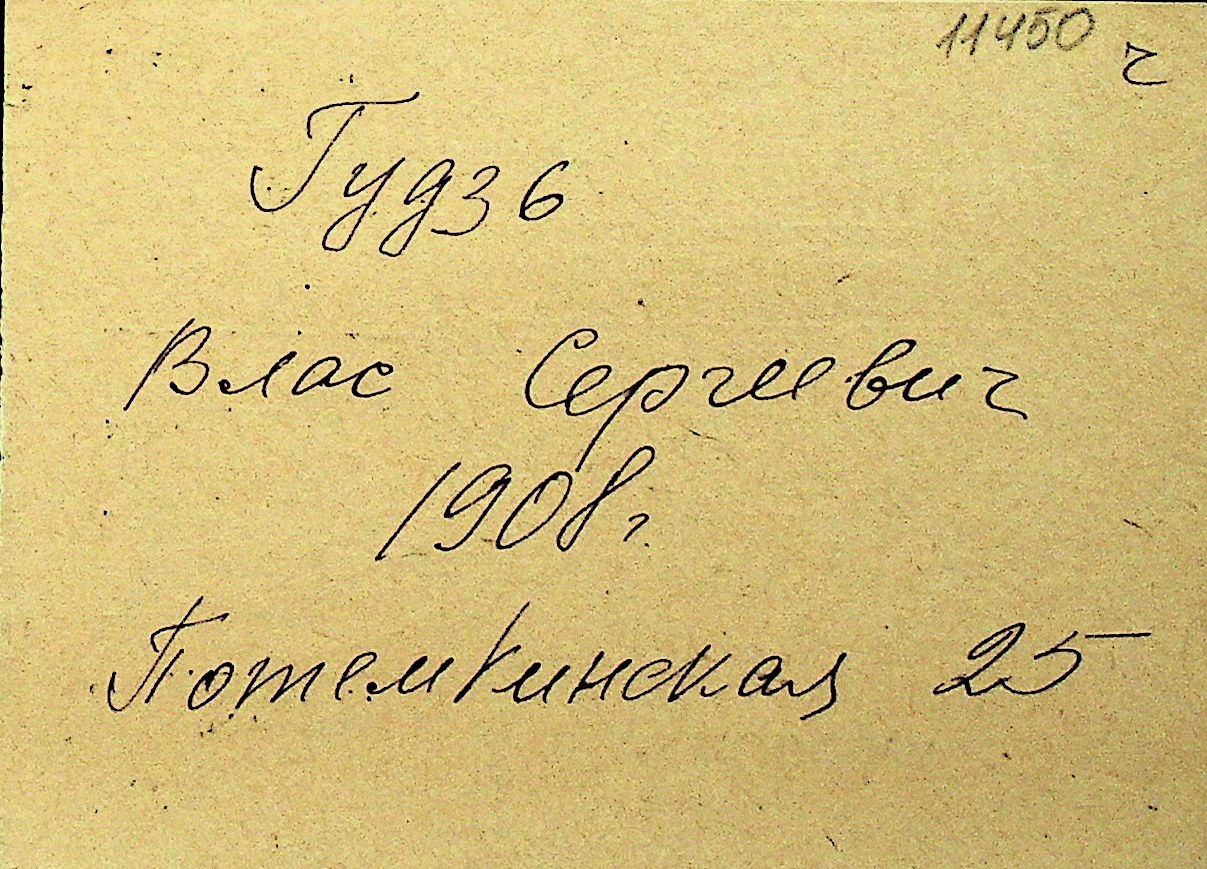 11450
ч
Гудзь
Влас Сергеевич
1908г.
Потемкинская 25